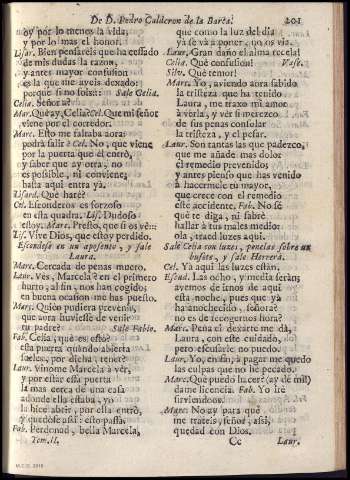 De D. Pedro Calderon de la Barca. 201
oy por lo menos la vida,
y por lo mas el honor.
Lisar. Bien pensareis que ha cessado
de mis dudas la razon,
y antes mayor confusion
es la que me aveis dexado:
porque si no fois: Sale Celia.
Celia. Señora?
Mar. Que ay, Celia? Cel. Que mi señor
viene por el corredor.
Marc. Esto me faltaba aora:
podrà salir? Cel. No, que viene
por la puerta que èl entrò,
y saber que ay otra, no
es possible, ni conviene,
hasta aqui entra yà.
Lisard. Què harè?
Cel. Esconderos es forzoso
en esta quadra. Lis. Dudoso
estoy. Marc. Presto, que si os vè::
Lis. Vive Dios, que estoy perdido.
Escondese en un aposento, y sale
Laura.
Marc. Cercada de penas muero.
Laur. Ves, Marcela? en el primero
hurto, al fin, nos han cogido;
en buena ocasion me has puesto.
Marc. Quièn pudiera prevenir,
que aora huviesse de venir
tu padre? Sale Fabio.
Fab. Celia, què es esto?
esta puerta quando abierta
sueles, por dicha, tener?
Laur. Vinome Marcela à vèr,
y por estàr esta puerta
la mas cerca de una casa
adonde ella estaba, yo
la hice abrir, por ella entrò,
y quedose assi: esto passa.
Fab. Perdonad, bella Marcela,
Tom. II.
que como la luz del dia
yà se và à poner, no os vìa.
Laur. Gran daño el alma recela!
Celia. Què confusion! Vase.
Silv. Què temor!
Marc. Yo, aviendo aora sabido
la tristeza que ha tenido
Laura, me traxo mi amor
à verla, y vèr si merezco
de sus penas consolar
la tristeza, y el pesar.
Laur. Son tantas las que padezco,
que me añade mas dolor
el remedio prevenido;
y antes pienso que has venido
à hacermele tu mayor,
que crece con el remedio
este accidente. Fab. No sè
què te diga, ni sabrè
hallar à tus males medio:
ola, traed luzes aqui.
Sale Celia con luzes, ponelas sobre un
bufete, y sale Herrera.
Cel. Yà aqui las luzes estàn.
Escud. Las ocho, y media seràn;
avemos de irnos de aqui
esta noche, pues que yà
ha anochecido, señora?
no es de recogernos hora?
Marc. Pena el dexarte me dà,
Laura, con este cuidado,
pero escusarle no puedo.
Laur. Yo, prima, à pagar me quedo
las culpas que no he pecado.
Marc. Que puedo hacer? (ay de mi!)
dame licencia. Fab. Yo irè
sirviendoos.
Marc. No ay para què
me trateis, señor, assi,
quedad con Dios.
Cc Laur.